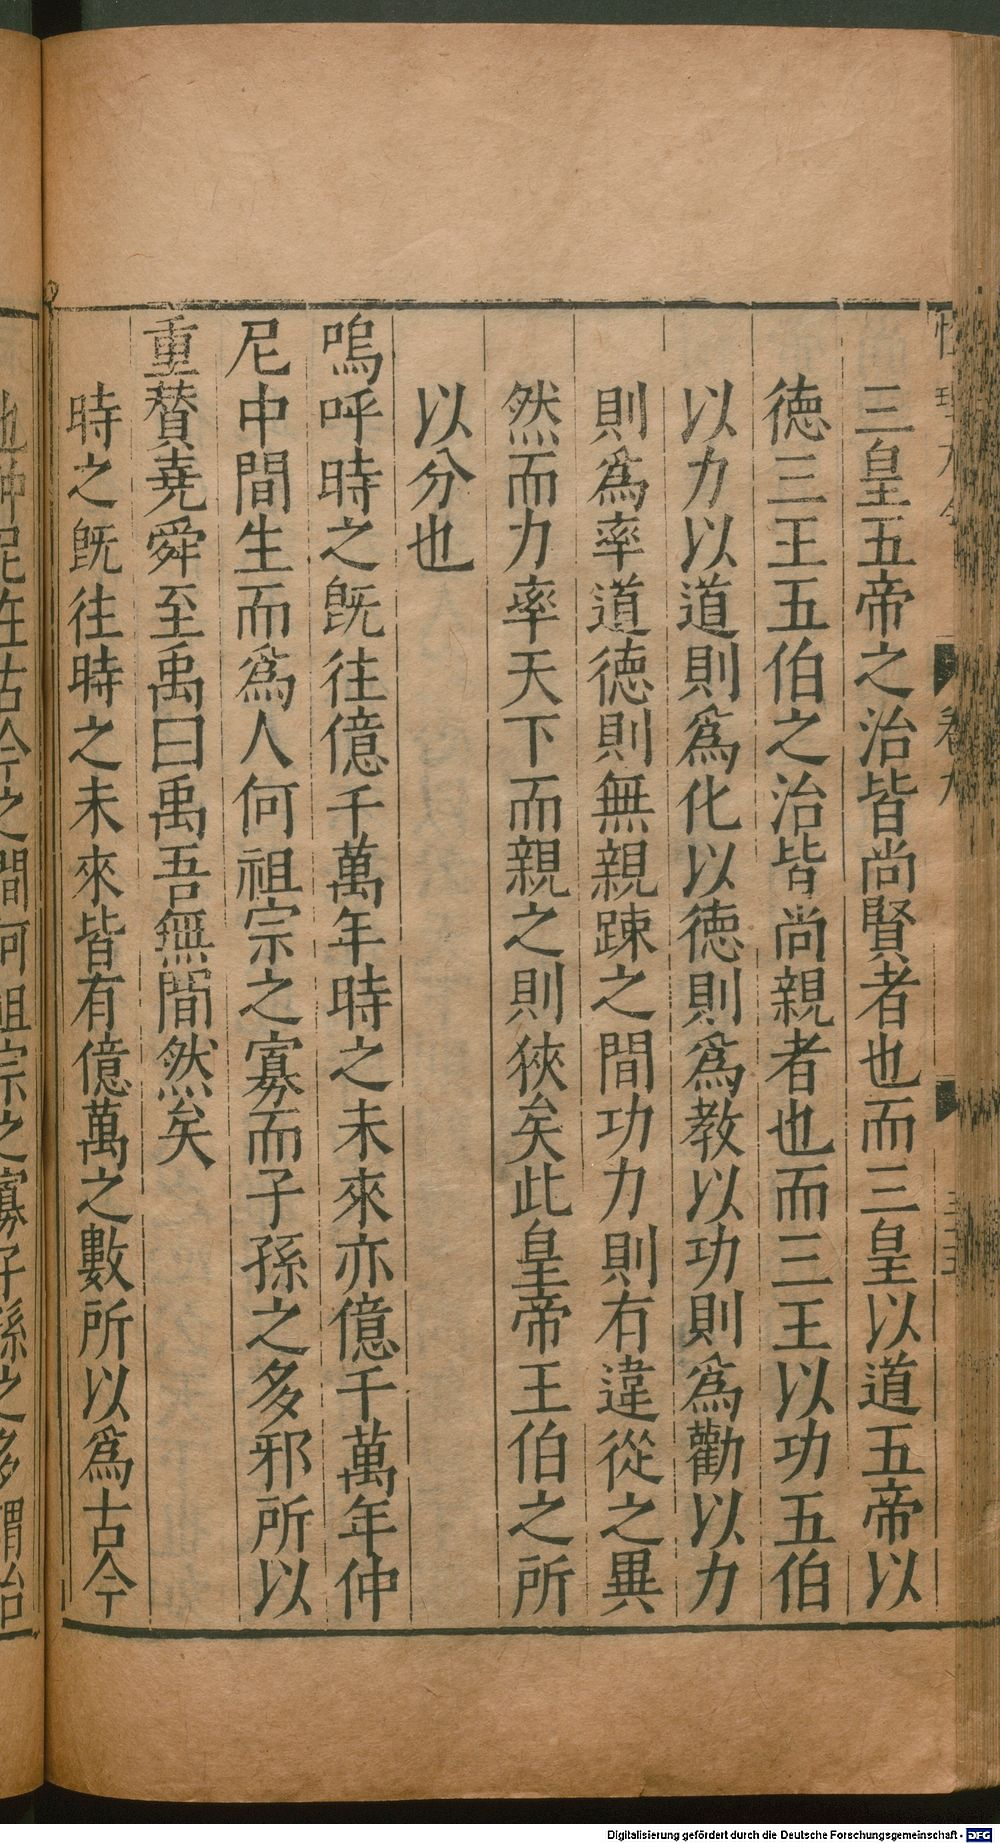 三皇五帝之治皆尚賢者也而三皇以道五帝以
徳三王五伯之治皆尚親者也而三王以功五伯
以力以道則爲化以徳則爲教以功則爲勸以力
則爲率道徳則無親踈之間功力則有違從之異
然而力率天下而親之則狹矣此皇帝王伯之所
以分也
嗚呼時之旣往億千萬年時之未來亦億千萬年仲
尼中間生而爲人何祖宗之寡而子孫之多邪所以
重賛堯舜至禹曰禹吾無間然矣
時之旣往時之未來皆有億萬之數所以爲古今
仲尼在古今之間何祖宗之寡子孫之多謂治
卷九
Digitalisierung gefördert durch die Deutsche Forschungsgemeinschaft - DFG